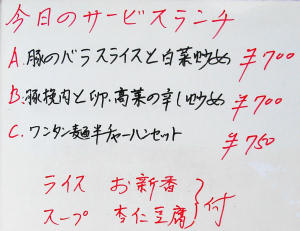 今日のサービスランチ
A.豚のバラスライスと白菜炒め ¥700
B.豚挽肉と卵.高菜の辛し炒め ¥700
C.ワンタン麺半チャーハンセット ¥750
ライス お新香
スープ 杏仁豆腐 }付